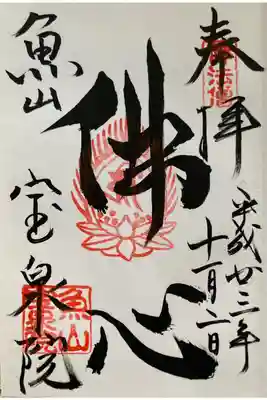 奉拝
平成廿三年
十一月二日
佛心
魚山
宝泉院
魚山